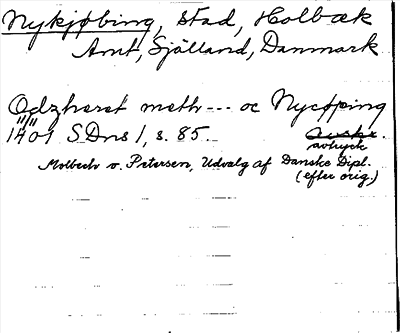 Nykjøbing, stad, Holbæk
Amt, Själland, Danmark
Odzhæret meth --- oc Nycøping
1401 SDns 1, s. 85.
avtryck
Molbech o. Petersen, Udvalg af Danske Dipl.
(efter orig.)